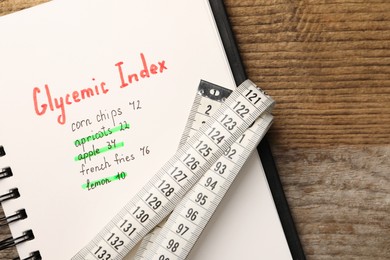 Glycemic Index
corn chips 72
apricots 22
apple 34
french fries 76
lemon 40
2
121
122
123
124
125
126
127
128
129
130
131
132
133
1
2
93
94
95
96
97
98